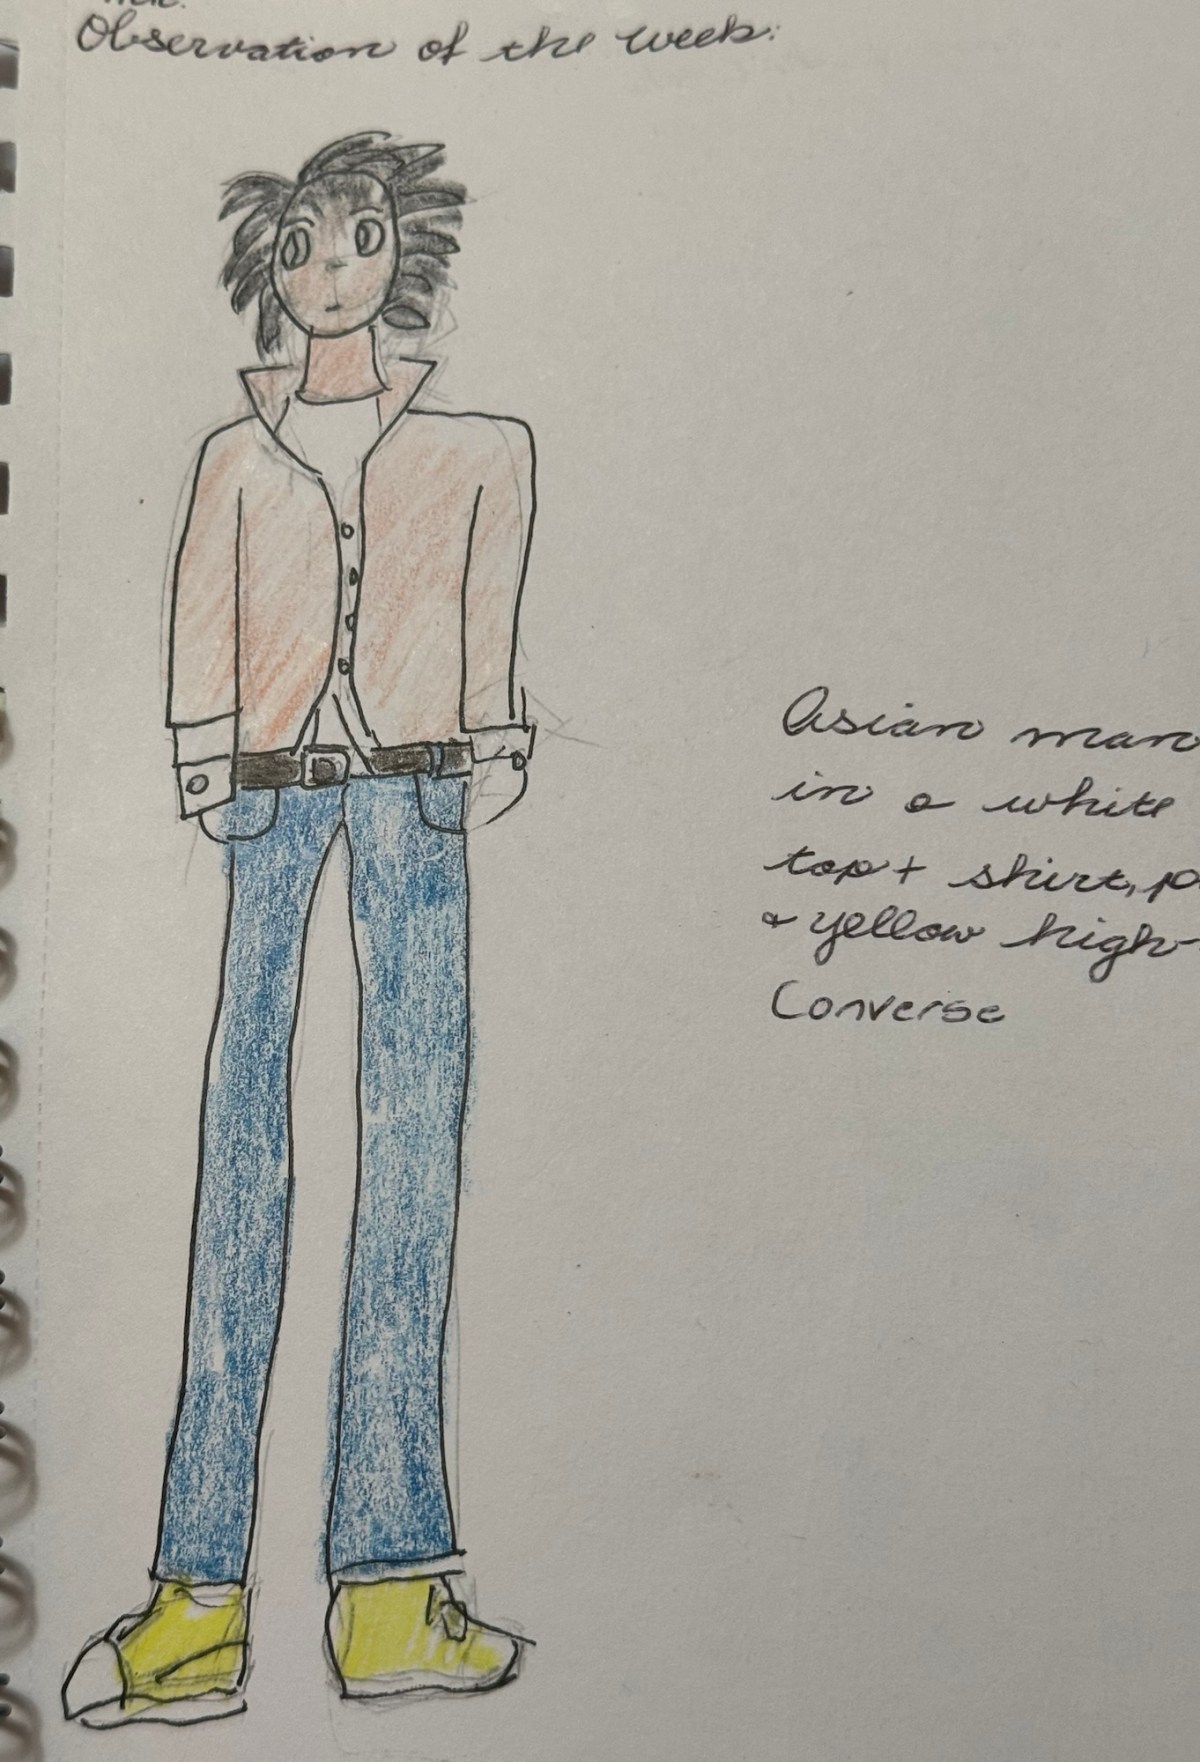 Observation of the week:
Asian man
in a white
top + shirt,
& yellow high-
Converse